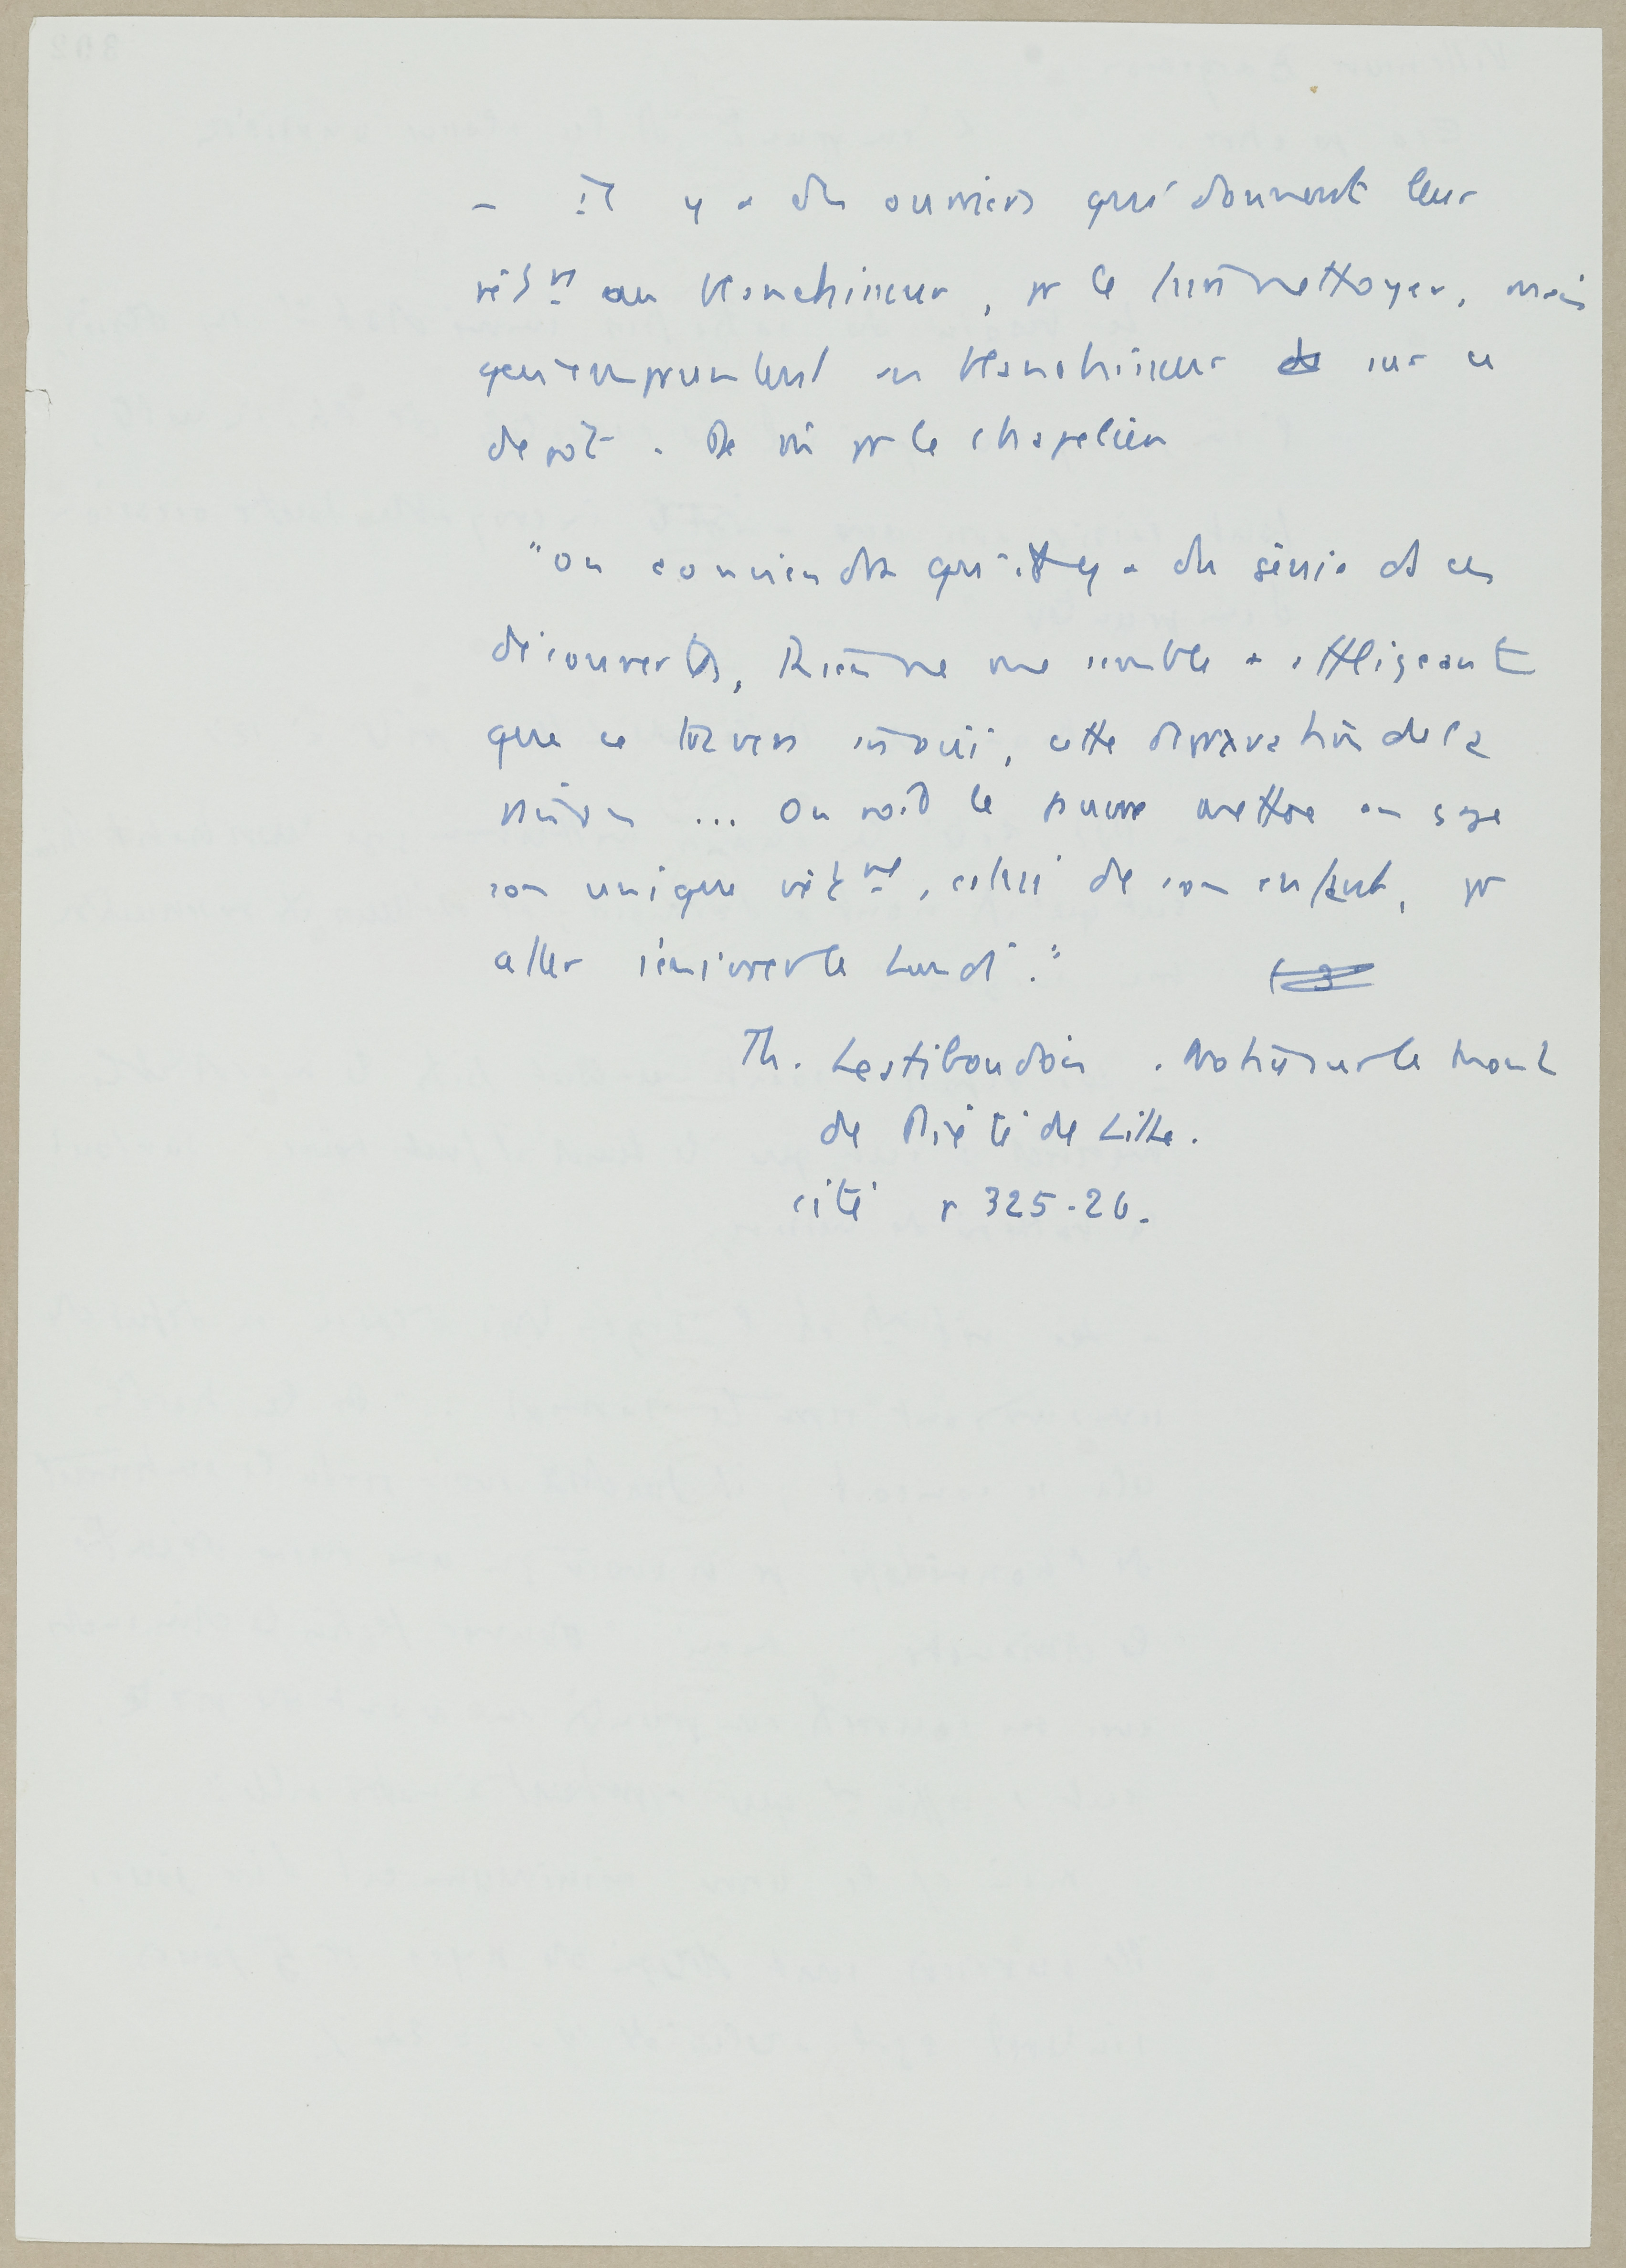 - il y a des ouvriers qui donnent leur
vêt nt au blanchisseur, pr le faire nettoyer, mais
qui empruntent au blanchisseur sur ce
depôt. De m pr le chapelier
"On conviendra qu'il y a du génie ds ces
découvertes, Rien ne me semble + affligeant
que ce travers inouï, cette dépravation de la
misère ... On voit le pauvre mettre en gage
son unique vêt nt, celui de son enfant, pr
aller s'enivrer le Lundi."
Th. Lestiboudois. Notice sur le Mont
de Piété de Lille.
cité p 325-26.